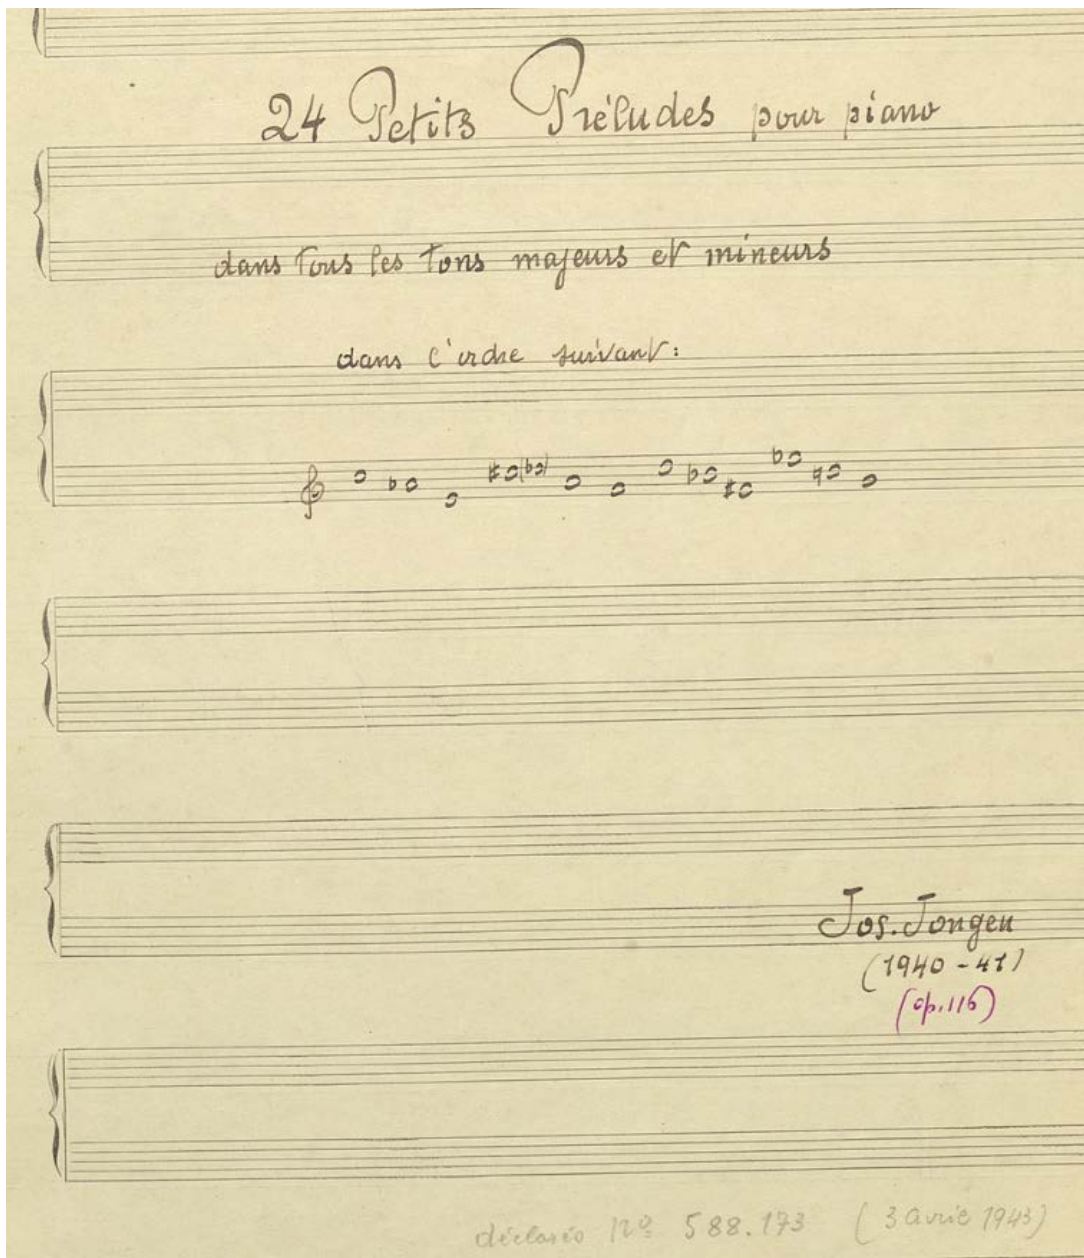 24 Petits Préludes pour piano
dans tous les tons majeurs et mineurs
dans l'ordre suivant:
Jos. Jongen
(1940-41)
(op.116)
déclaré Nº 588.173 (3 avril 1943)